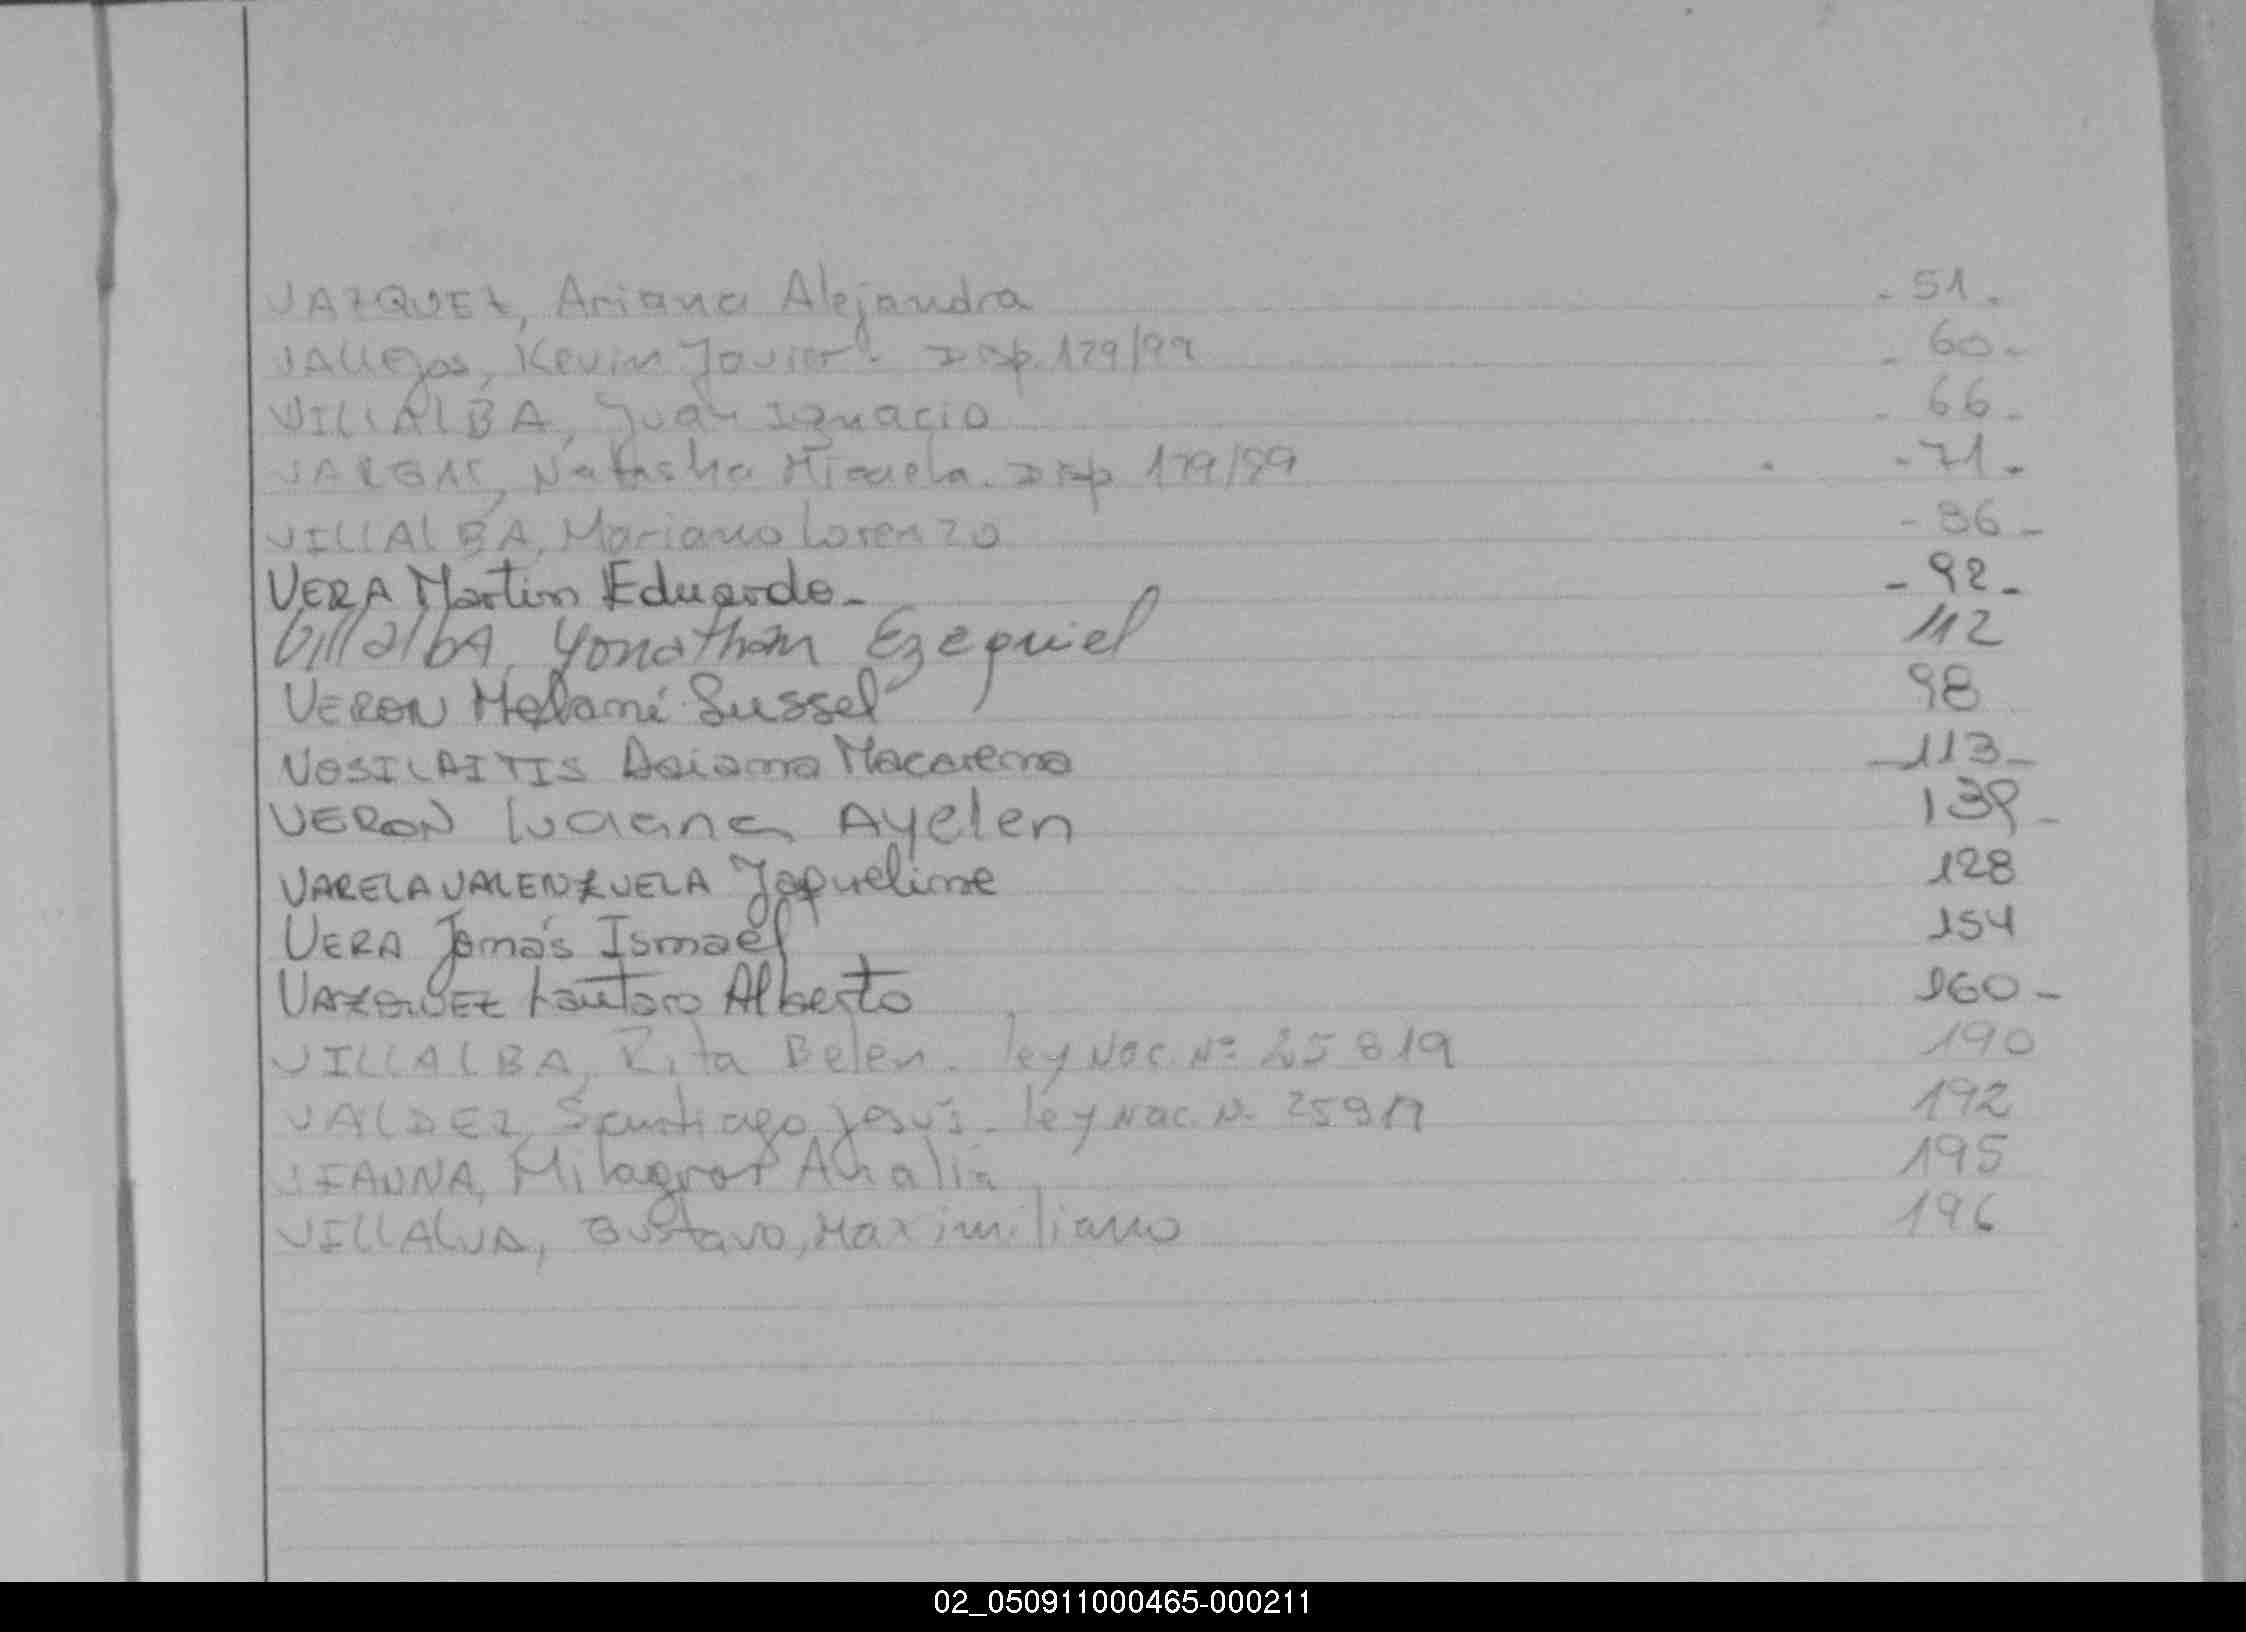 VAZQUEZ, Ariana Alejandra - 51 -
VALLEJOS, Kevin Javier - Disp. 179/99 - 60 -
VILLALBA, Juan Ignacio - 66 -
VARGAS, Natasha Micaela. Disp 179/99 - 71 -
VILLALBA, Mariano Lorenzo - 86 -
VERA Martin Eduardo - - 92 -
Villalba, Yonathan Ezequiel 112
VERON Melani Sussel 98
VOSILAITIS Daiana Macarena - 113 -
VERON Luciana Ayelen 139 -
VARELA VALENZUELA Jaqueline 128
VERA Tomás Ismael 154
VAZQUEZ Lautaro Alberto 160 -
VILLALBA, Rita Belen. ley Nac. Nº 25819 190
VALDEZ, Santiago Jesús - ley Nac. Nº 192
Milagros Analia 195
VILLALVA, Gustavo, Maximiliano 196
02_050911000465-000211